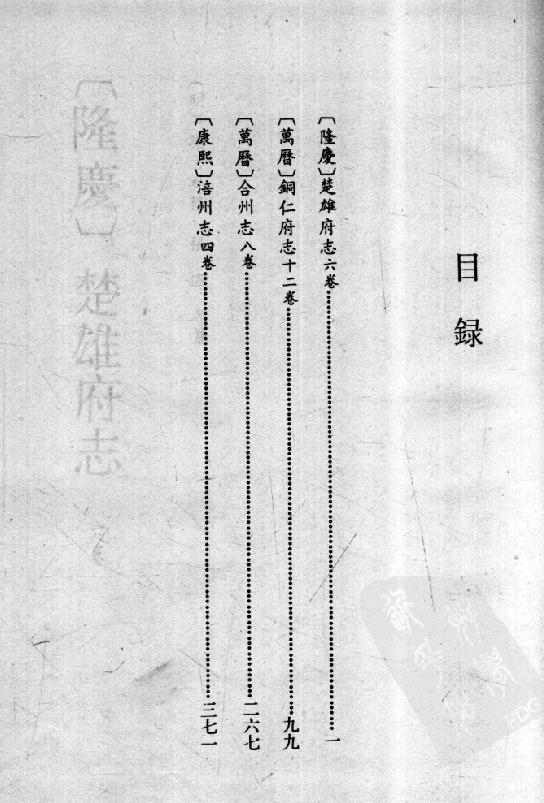 目録
〔隆慶〕楚雄府志六卷……一
〔萬曆〕銅仁府志十二卷……九九
〔萬曆〕合州志八卷……二六七
〔康熙〕涪州志四卷……三七一
〔隆慶〕楚雄府志